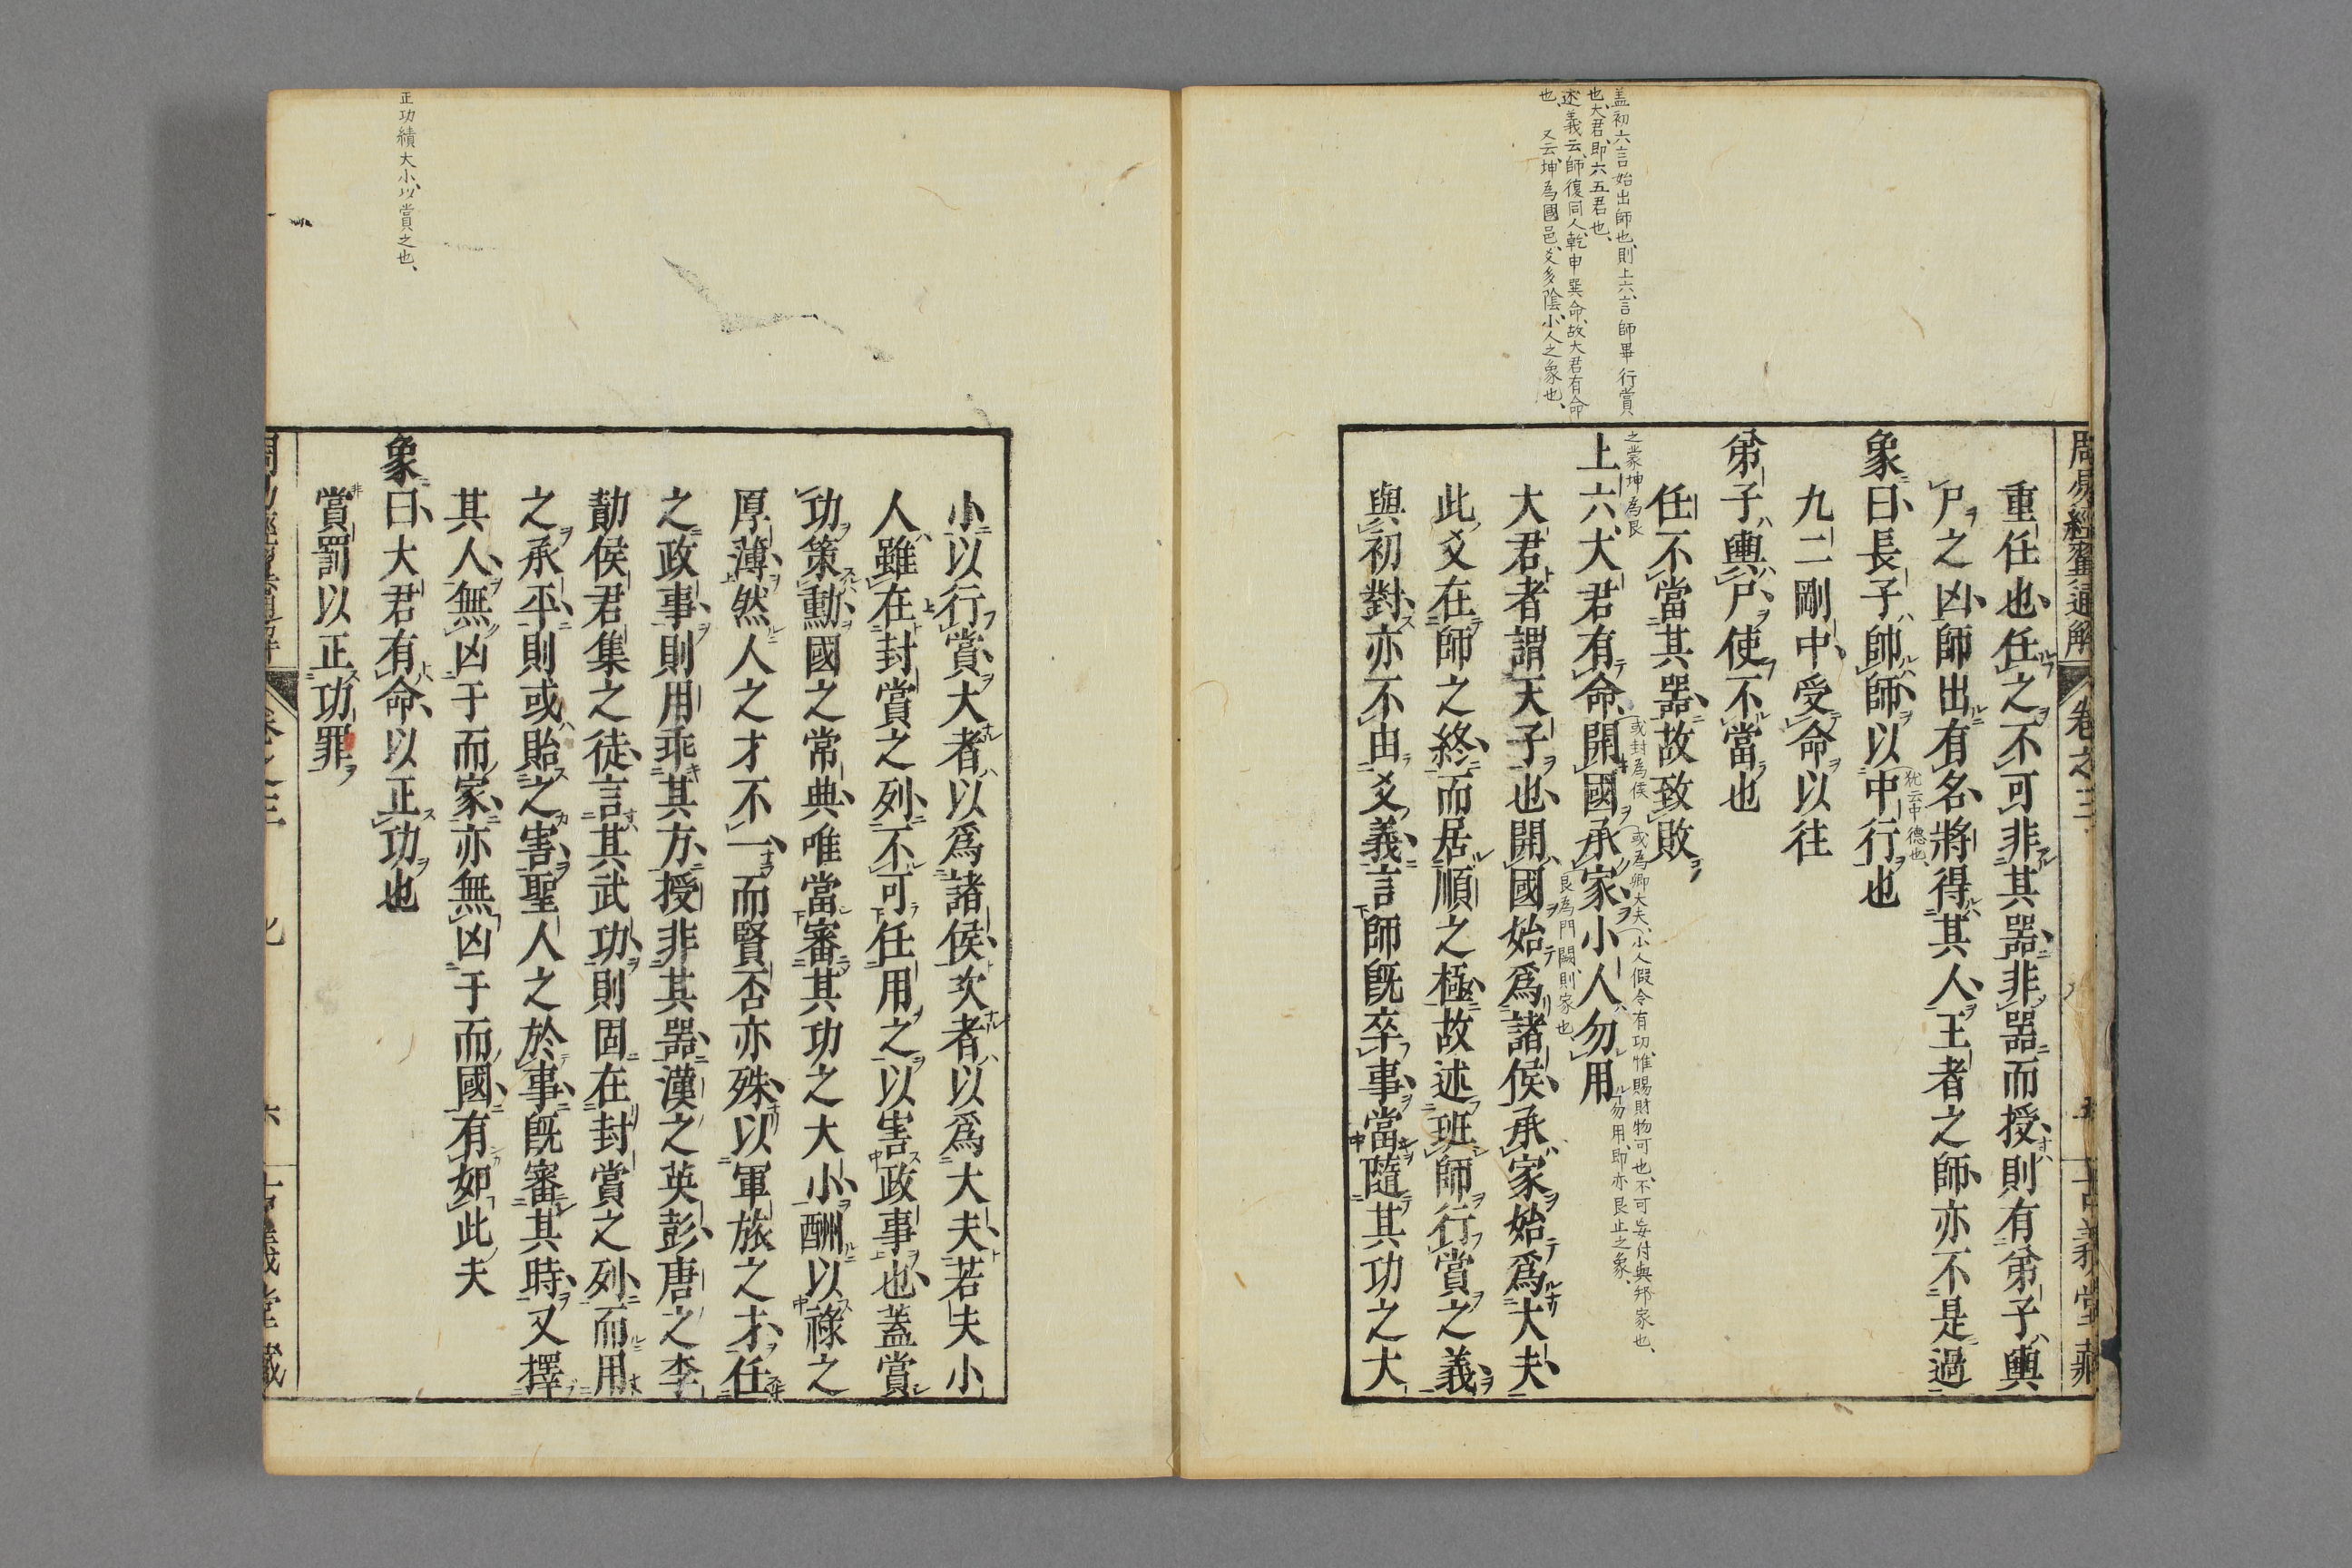 重任也任之不可非其器非器而授則有弟子輿
尸之凶師出有名將得其人王者之師亦不是過
象曰長子帥師以中行也
猶云中德也
九二剛中受命以往
弟子輿尸使不當也
任不當其器故致敗
蓋初六言始出師也、則上六、言師畢行賞
也、大君、即六五君也、
述義云、師復同人、乾申巽命、故大君有命
也、又云、坤為國邑、爻多陰、小人之象也、
之蒙坤為艮
上六大君有命開國承家小人勿用
或封為侯
或為卿大夫、小人假令有功、惟賜財物可也、不可妄付與邦家也、
勿用、即亦艮止之象、
艮為門闕、則家也
大君者謂天子也開國始爲諸侯承家始爲大夫
此爻在師之終而居順之極故述班師行賞之義
與初對亦不由爻義言師既卒事當隨其功之大
小以行賞大者以爲諸侯次者以爲大夫若夫小
人雖在封賞之列不可任用之以害政事也蓋賞
功策勳國之常典唯當審其功之大小酬以祿之
厚薄然人之才不一而賢否亦殊以軍旅之才任
之政事則用乖其方授非其器漢之英彭唐之李
勣侯君集之徒言其武功則固在封賞之列而用
之承平則或貽之害聖人之於事既審其時又擇
其人無凶于而家亦無凶于而國有如此夫
正功績大小、以賞之也、
象曰大君有命以正功也
賞罰以正功罪
周易經翼通解 卷之三 古義堂藏